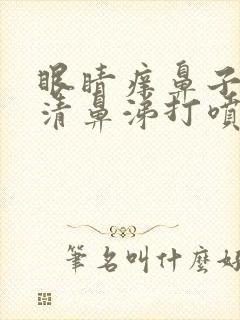 眼睛痒鼻子
清鼻涕打噴
筆名叫什麼好